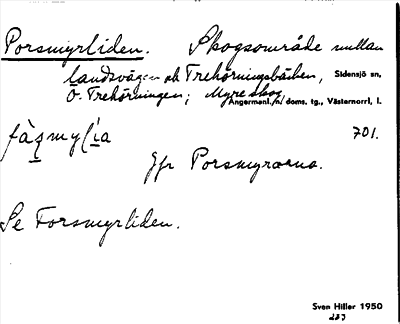 Porsmyrliden. Skogsområde mellan
landsvägen och Trehörningsbäcken, Sidensjö sn,
Ö. Trehörningen; Myre skog,
Ångermanl. n. doms. tg., Västernorrl. l.
701.
Jfr Porsmyrarna.
Se Forsmyrliden.
Sven Hiller 1950